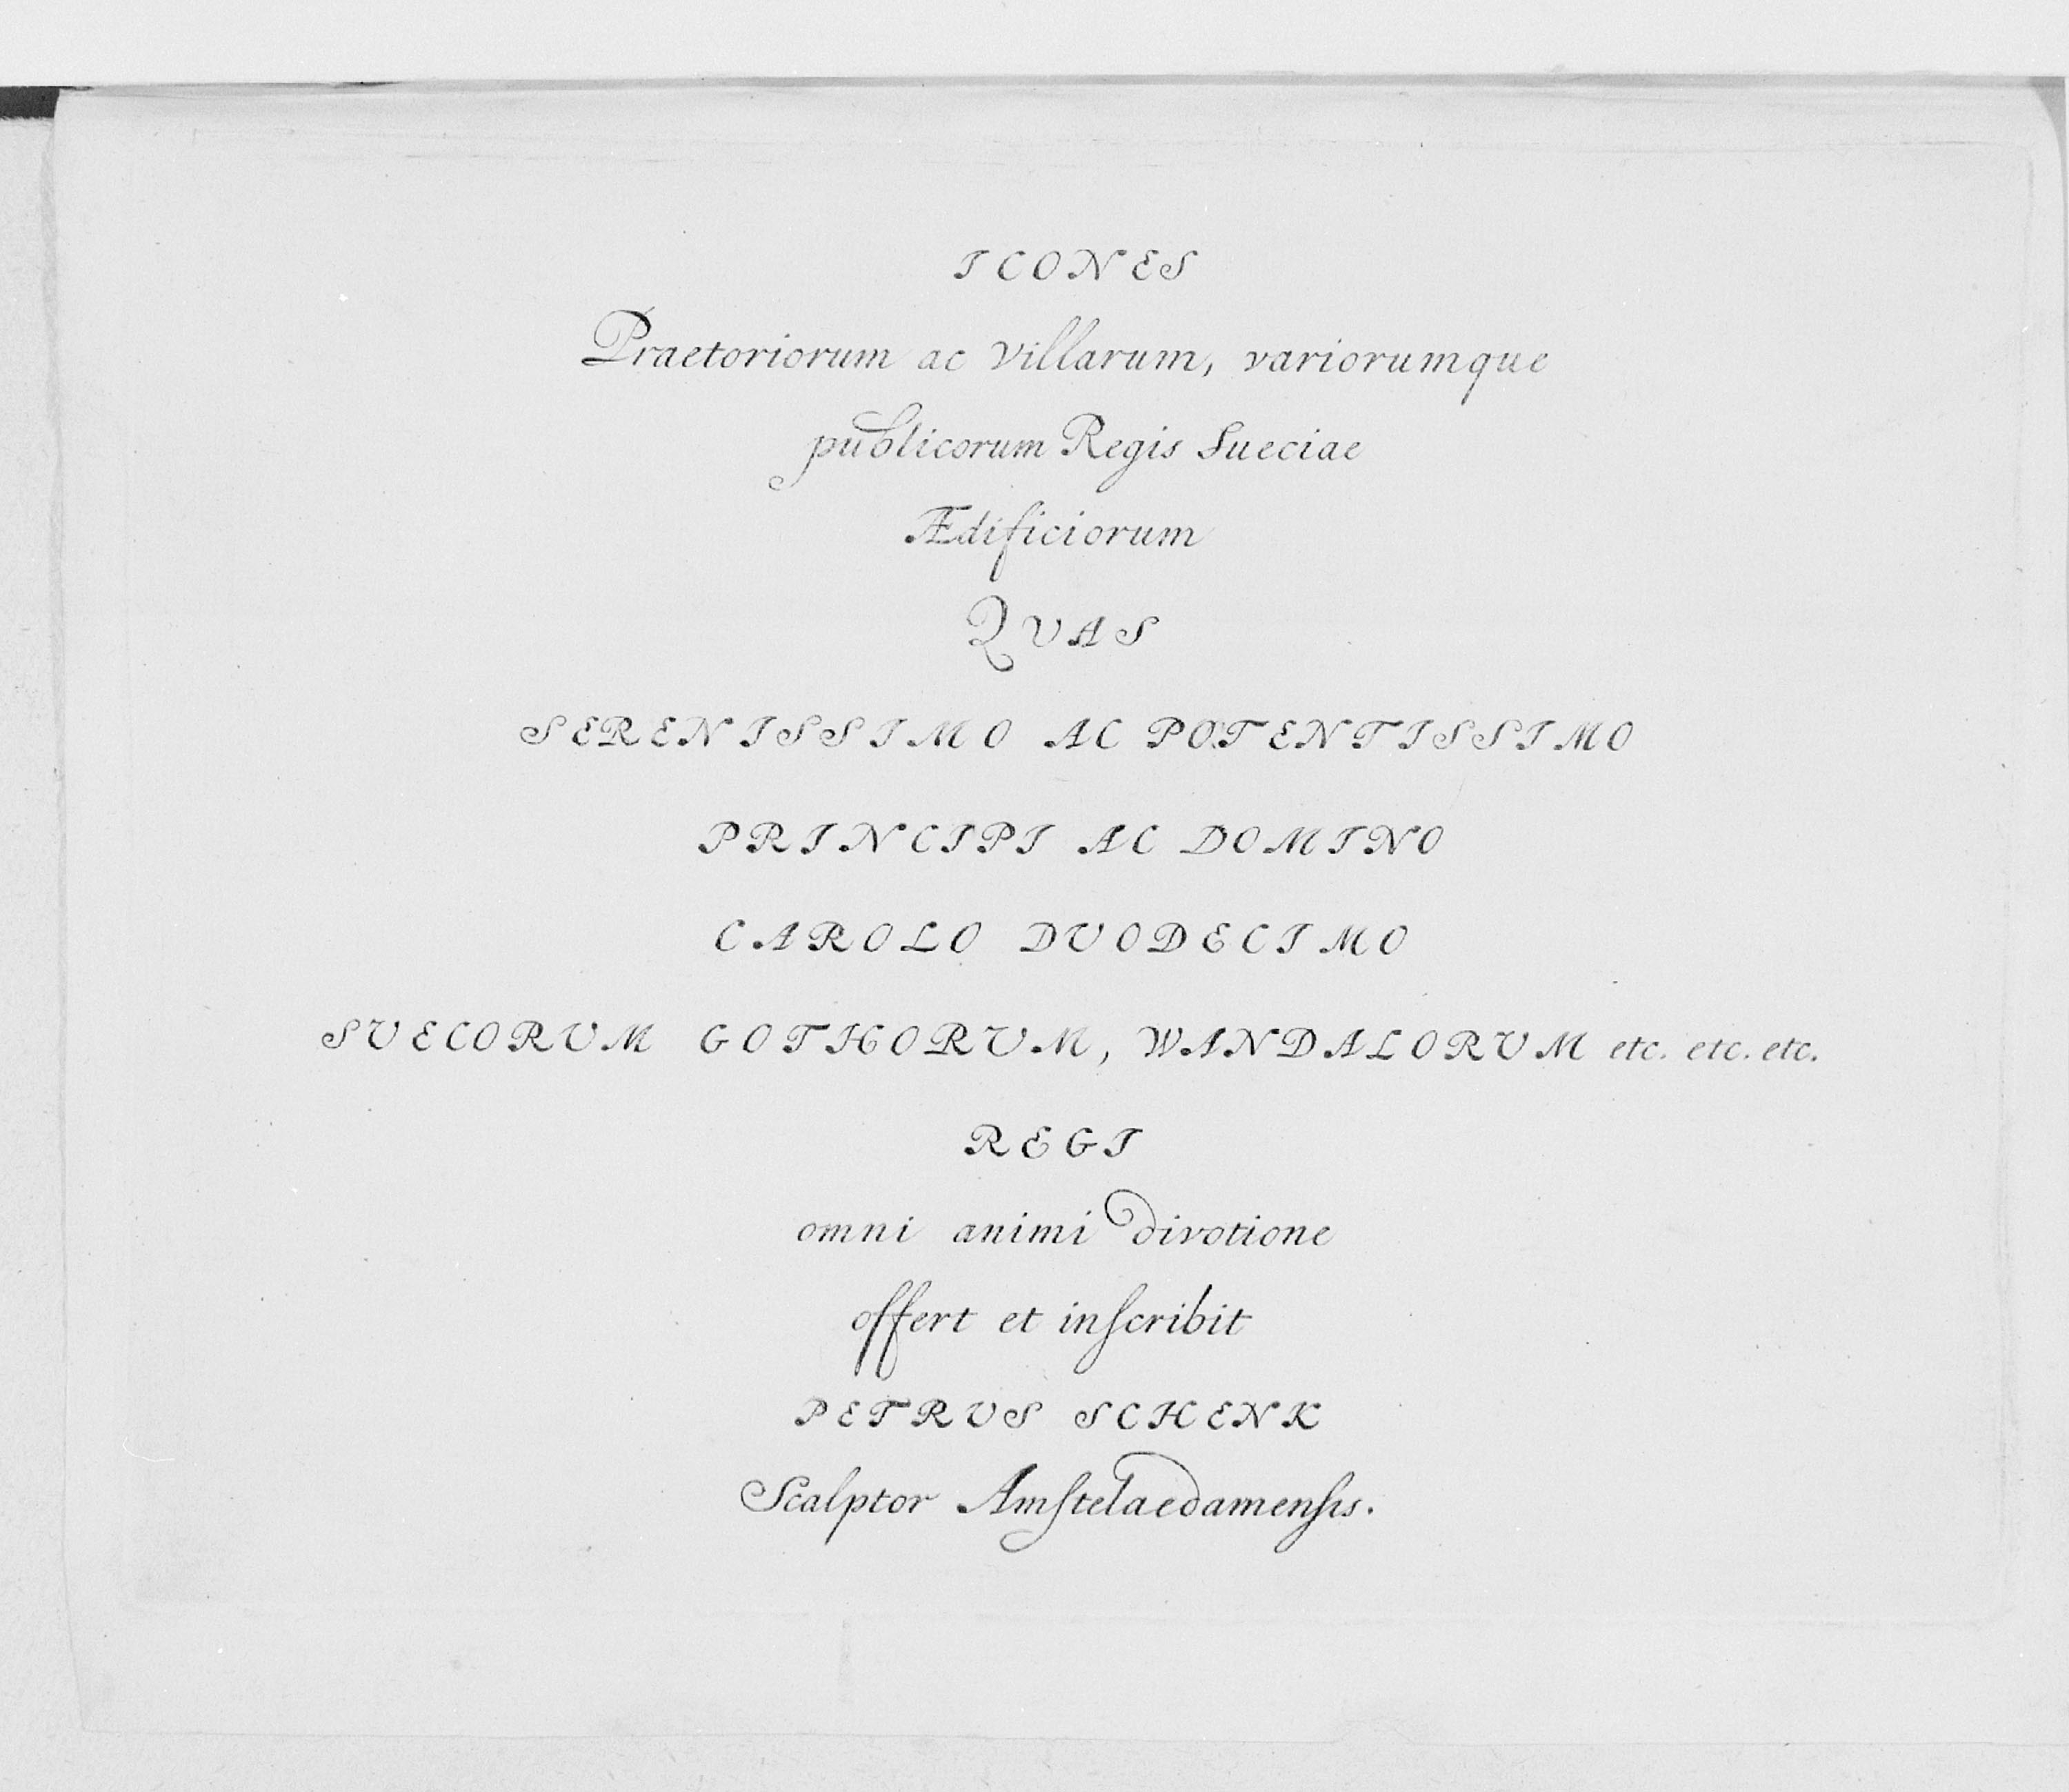 ICONES
Praetoriorum ac villarum, variorumque
publicorum Regis Sueciae
Ædificiorum
QVAS
SERENISSIMO AC POTENTISSIMO
PRINCIPI AC DOMINO
CAROLO DVODECIMO
SVECORVM GOTHORVM, WANDALORVM etc. etc. etc.
REGI
omni animi divotione
offert et inſcribit
PETRVS SCHENK
Scalptor Amſtelaedamenſis.